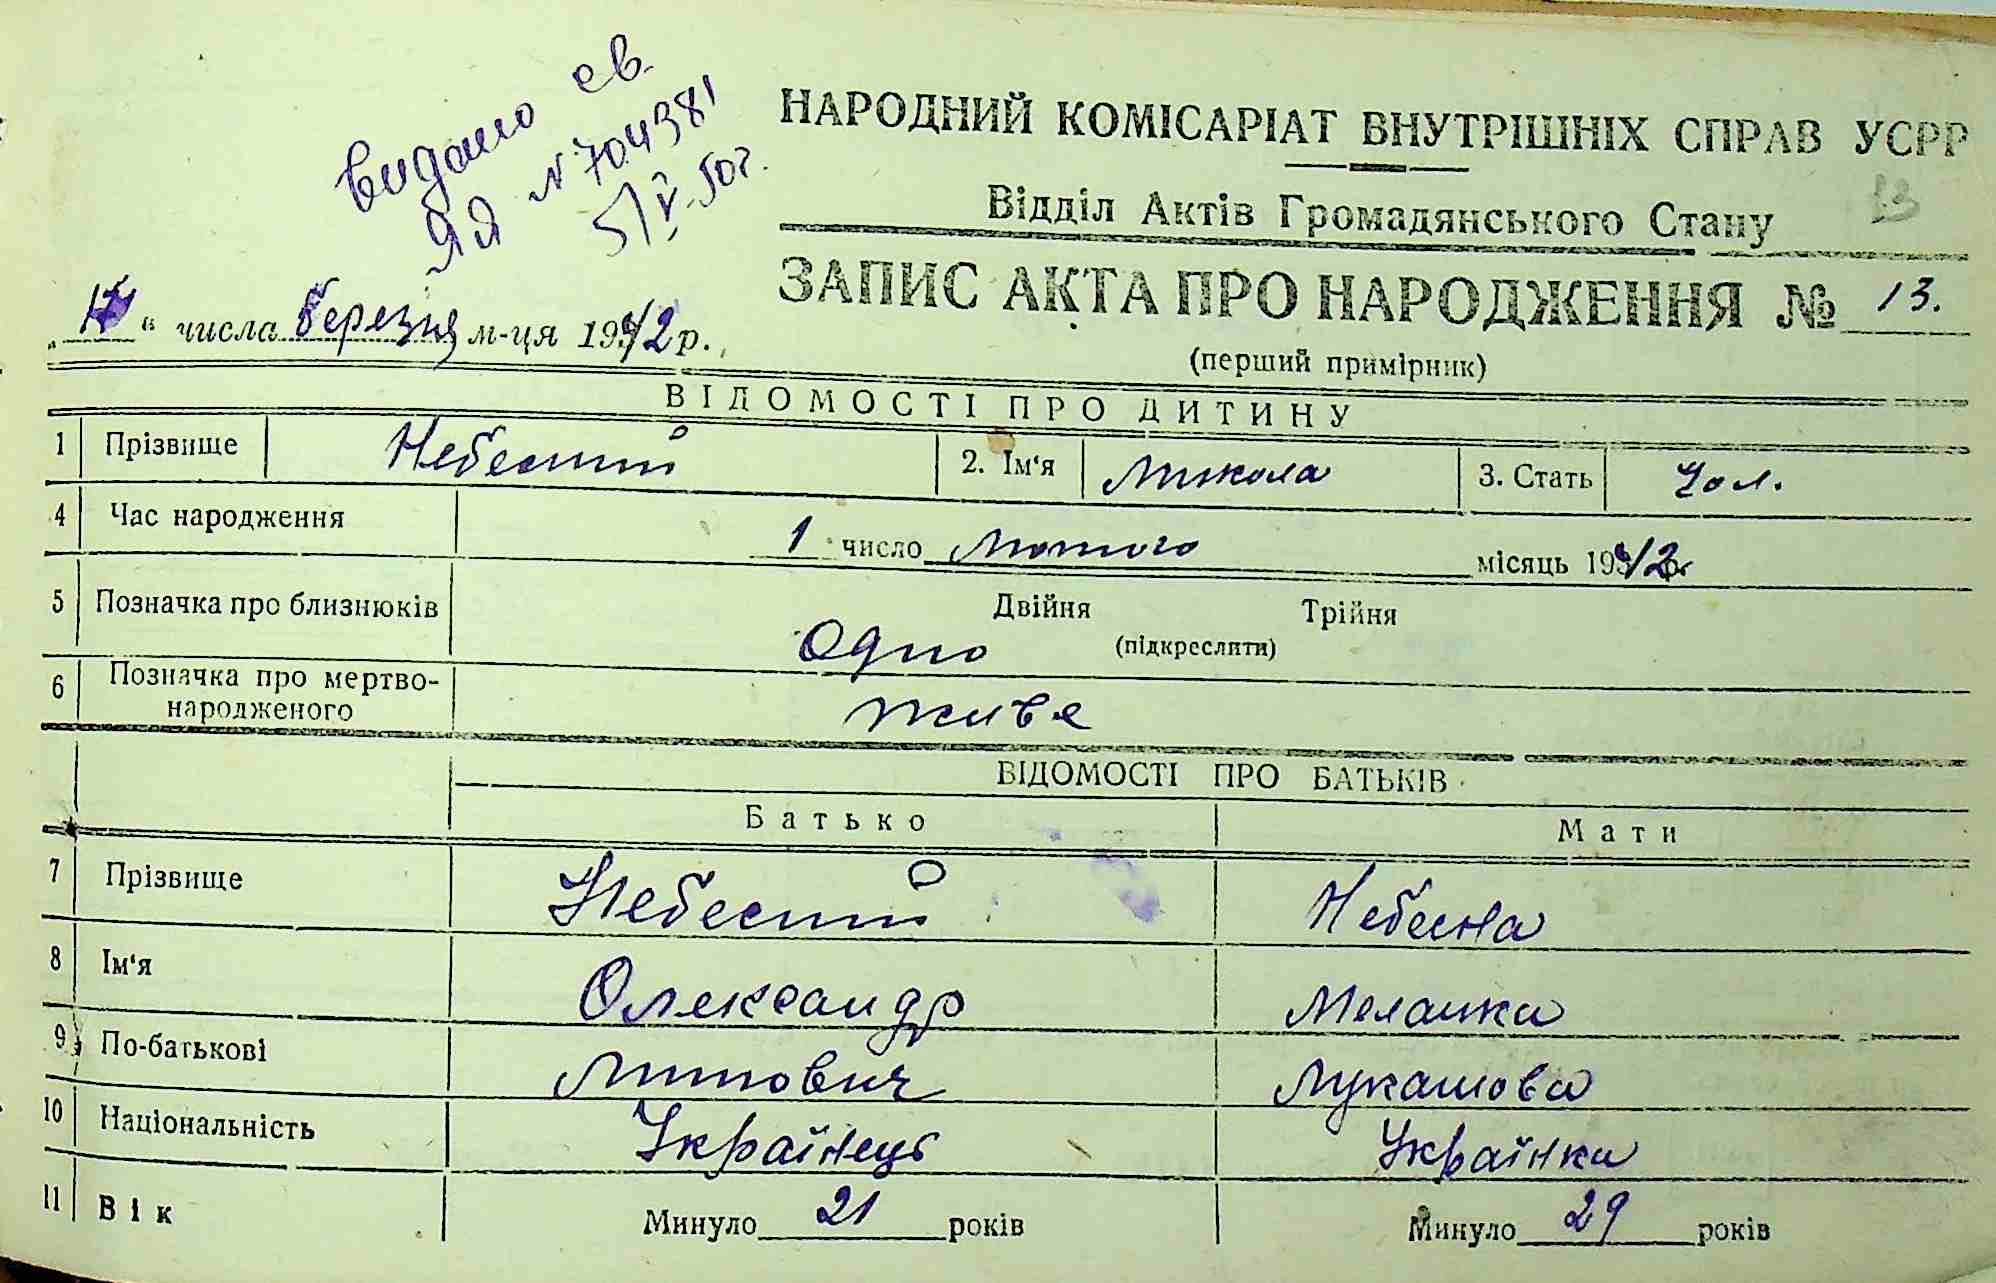 видано св.
ЯЯ № 704381
5/V-50 г.
НАРОДНИЙ КОМІСАРІАТ ВНУТРІШНІХ СПРАВ УСРР
Відділ Актів Громадянського Стану
13
ЗАПИС АКТА ПРО НАРОДЖЕННЯ № 13.
(перший примірник)
" числа березня м-ця 1942 р.
ВІДОМОСТІ ПРО ДИТИНУ
1 Прізвище Небесний 2. Ім'я Микола 3. Стать Чол.
4 Час народження 1 число Лютого місяць 1942 р.
5 Позначка про близнюків Двійня Трійня
Одно (підкреслити)
6 Позначка про мертво-
народженого Живе
ВІДОМОСТІ ПРО БАТЬКІВ
Батько Мати
7 Прізвище Небесний Небесна
8 Ім'я Олександр Меланка
9 По-батькові Лукашова
10 Національність Українець Українка
11 Вік Минуло 21 років Минуло 29 років